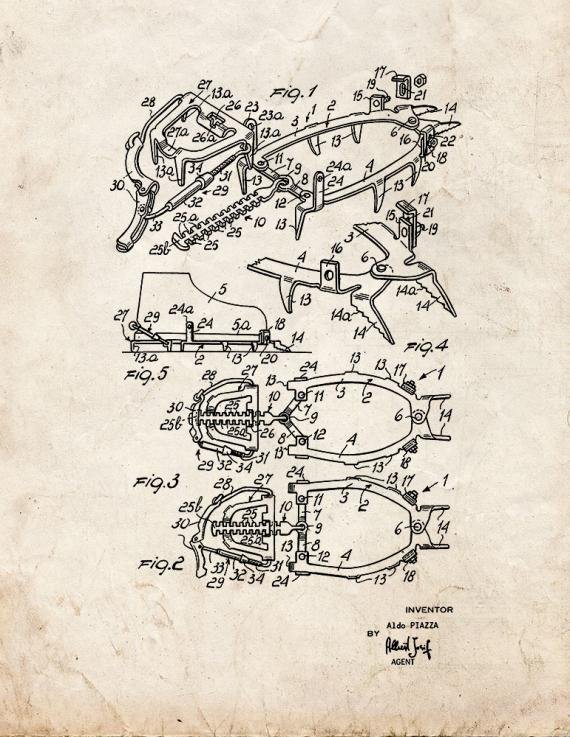 Fig.1
17
19
15
21
14
27
13a
26
28
23
23a
1
2
3
13
13a
6
16
22
18
20
27a
26a
11
7
9
24a
4
13a
34
31
13
8
24
13
30
32
29
12
17
33
25a
10
13
15
21
25
3
19
25b
25
4
16
6
14a
5
13
24a
14a
27
29
24
5a
18
14
13a
2
13
20
14
Fig.4
Fig.5
28
27
13
24
13
17
1
10
11
3
2
30
25
7
9
6
14
25b
25a
26
8
12
4
13
29
32
34
31
13
18
Fig.3
28
27
24
13
17
1
25b
11
3
2
30
25
10
7
9
6
14
25a
13
8
4
12
33
32
34
31
13
18
Fig.2
29
24
INVENTOR
Aldo PIAZZA
BY
AGENT